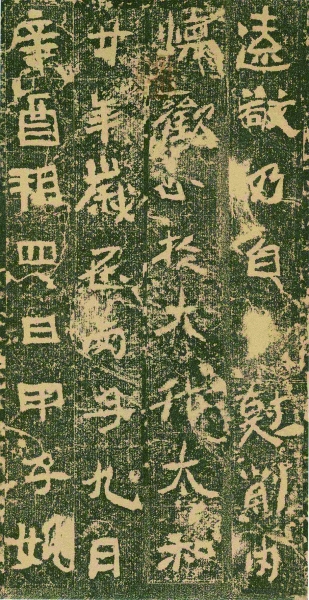 遠敬仍自尅削
懷歡心於大代太和
廿年歲在丙子九月
辛酉朔四日甲子姚